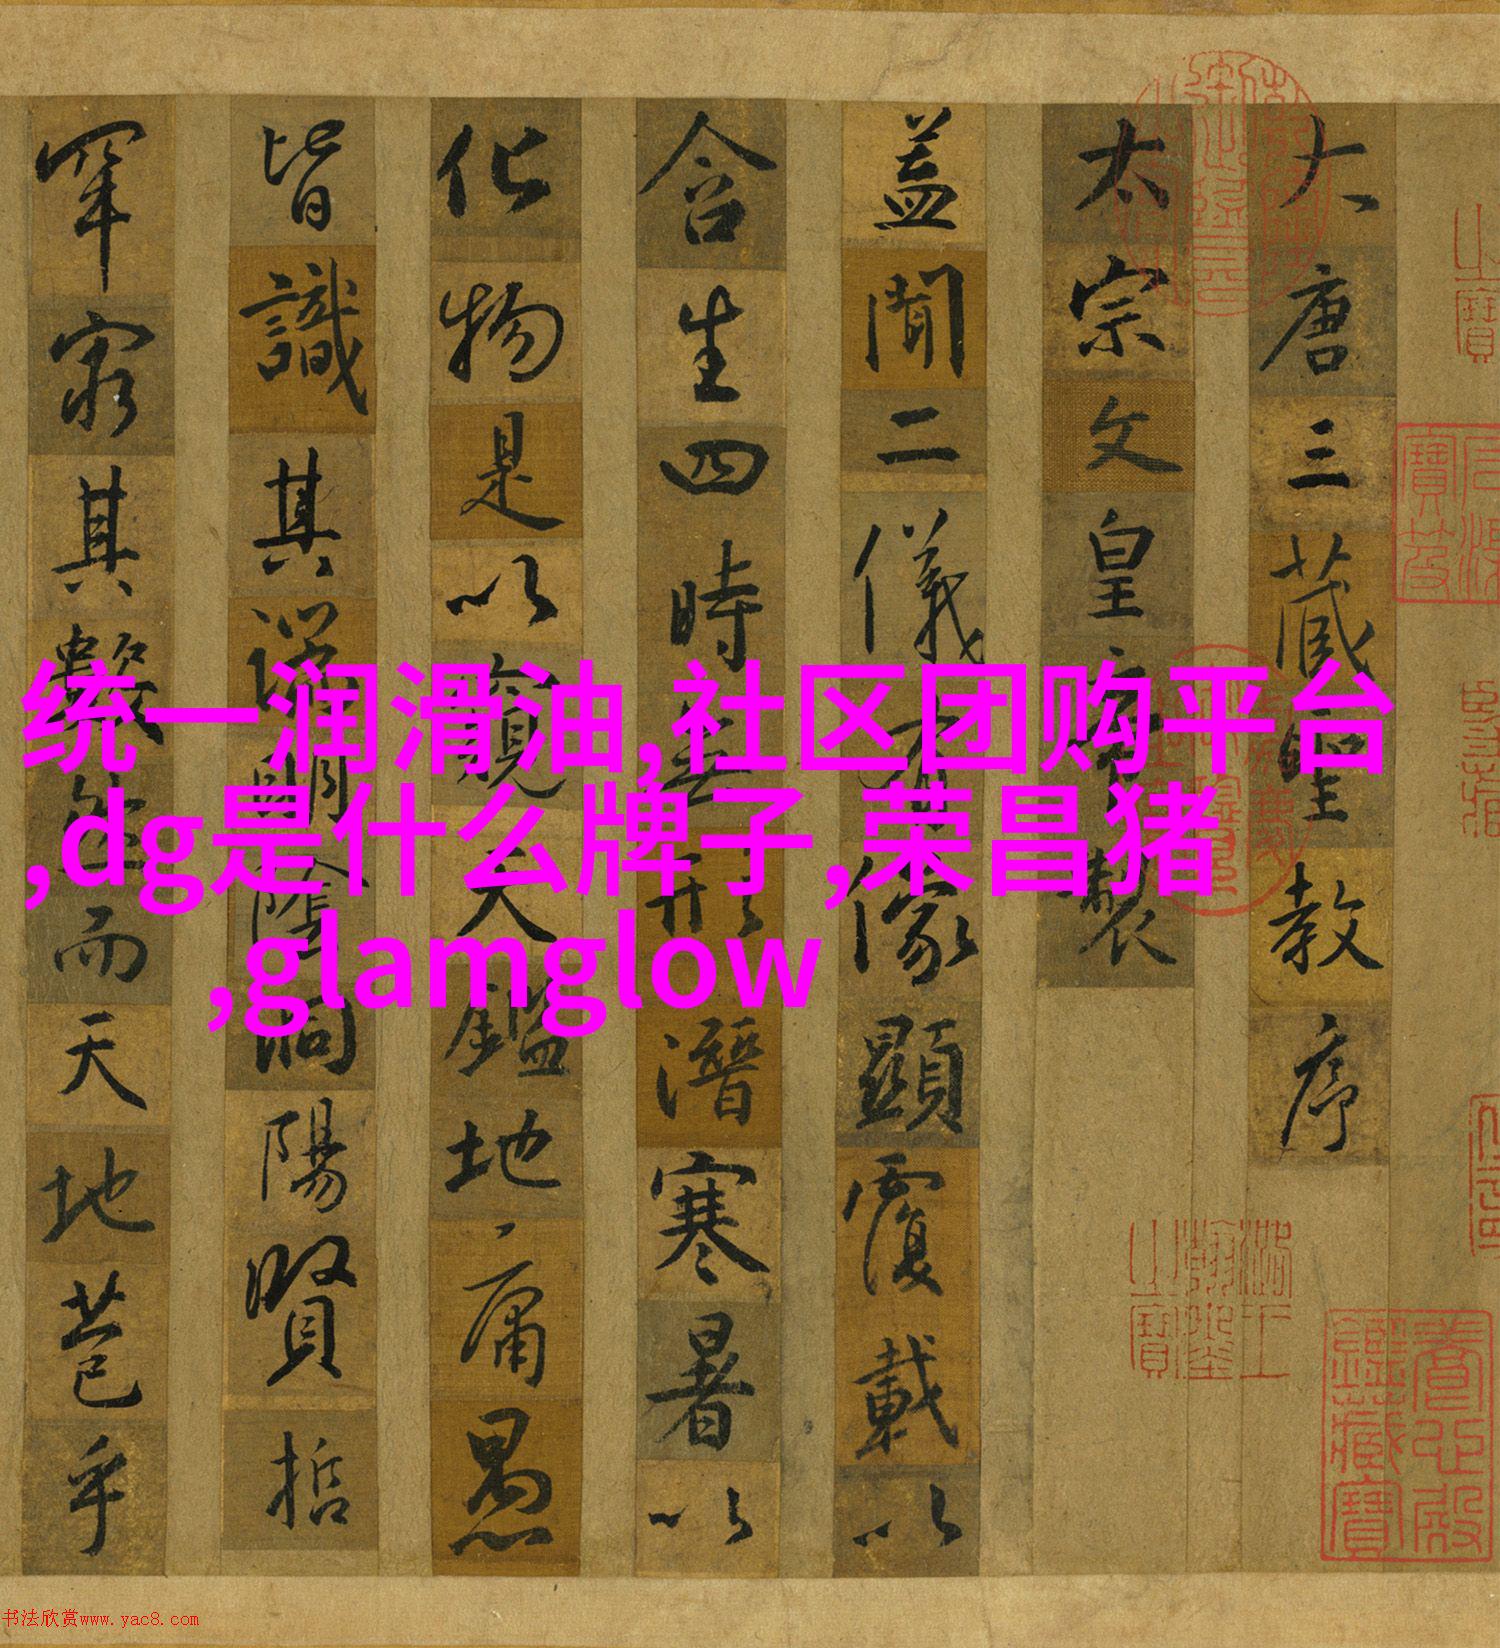 大唐三藏聖教序
太宗文皇帝製
蓋聞二儀有像顯覆載以
含生四時無形潛寒暑以
化物是以窺天鑑地庸愚
皆識其端明陰洞陽賢哲
罕窮其數然而天地苞乎
统一润滑油,社区团购平台
,dg是什么牌子,荣昌猪
,glamglow
養心殿鑑藏寶
书法欣赏www.yac8.com